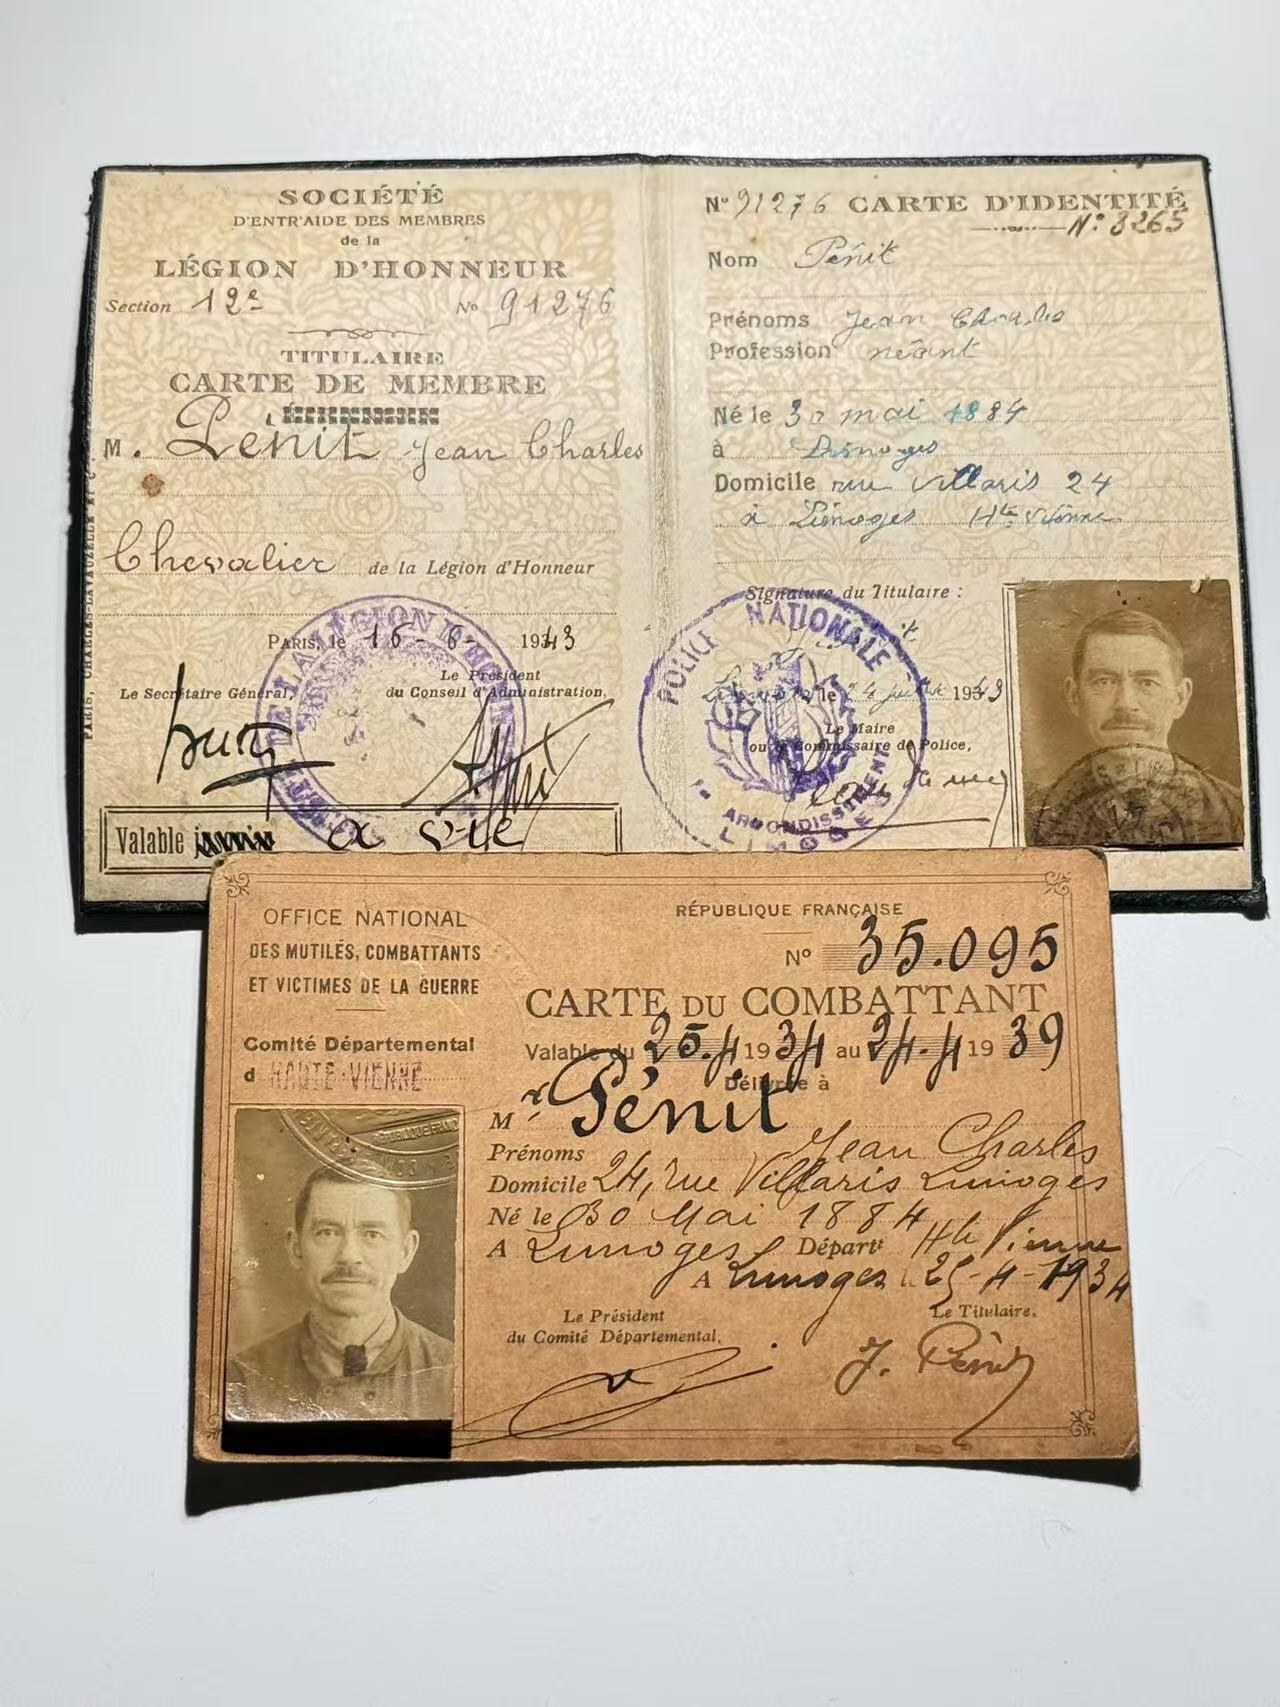 SOCIÉTÉ
D'ENTR'AIDE DES MEMBRES
de la
LÉGION D'HONNEUR
Section 12e No 91276
TITULAIRE
CARTE DE MEMBRE
M. Pénit Jean Charles
Chevalier de la Légion d'Honneur
PARIS, le 16-6- 1943
Le Secrétaire Général,
Le Président
du Conseil d'Administration,
Valable à vie
PARIS, CHARLES-LAVAUZELLE
DE LA LÉGION D'HONNEUR
No 91276 CARTE D'IDENTITÉ
No 3265
Nom Pénit
Prénoms Jean Charles
Profession néant
Né le 30 mai 1884
à Limoges
Domicile rue Villaris 24
à Limoges Hte Vienne
Signature du Titulaire :
Limoges le 24 juillet 1943
Le Maire
ou le Commissaire de Police,
POLICE NATIONALE
ARRONDISSEMENT
LIMOGES
OFFICE NATIONAL
DES MUTILÉS, COMBATTANTS
ET VICTIMES DE LA GUERRE
Comité Départemental
d HAUTE-VIENNE
RÉPUBLIQUE FRANÇAISE
No 35.095
CARTE DU COMBATTANT
Valable du 25.4 1934 au 24.4 1939
Délivrée à
Mr Pénit
Prénoms Jean Charles
Domicile 24, rue Villaris Limoges
Né le 30 Mai 1884
A Limoges Départt Hte Vienne
A Limoges le 25-4-1934
Le Président
du Comité Départemental,
Le Titulaire,
J. Pénit